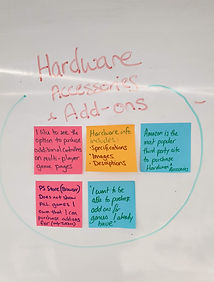 Hardware
Accessories
& Add-ons
I like to see the
option to purchase
additional controllers
on multi-player
game pages
Hardware info
includes:
-Specifications
-Images
-Descriptions
Amazon is the
most popular
third party site
to purchase
Hardware & Accessories
PS Store (Browser)
Does not show
ALL games I
own that I can
purchase addons
for
"I want to be
able to purchase
add ons for
games I already
have"